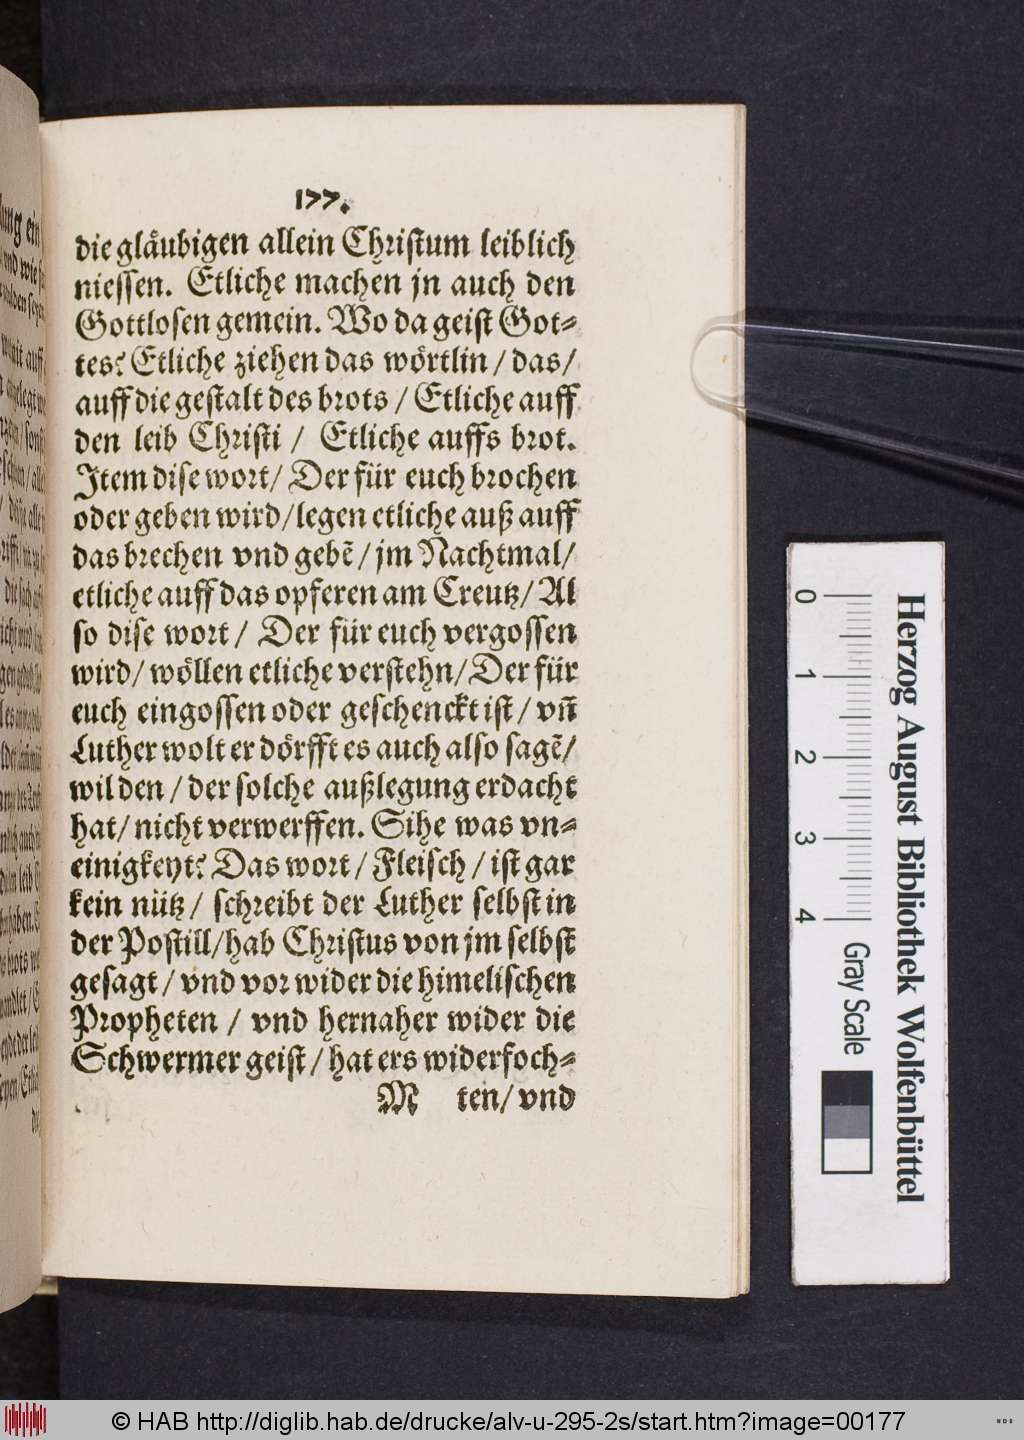 177.
die gläubigen allein Christum leiblich
niessen. Etliche machen jn auch den
Gottlosen gemein. Wo da geist Got⸗
tes? Etliche ziehen das wörtlin / das /
auff die gestalt des brots / Etliche auff
den leib Christi / Etliche auffs brot.
Item dise wort / Der für euch brochen
oder geben wird / legen etliche auß auff
das brechen vnd gebẽ / jm Nachtmal /
etliche auff das opferen am Creutz / Al
so dise wort / Der für euch vergossen
wird / wöllen etliche verstehn / Der für
euch eingossen oder geschenckt ist / vñ
Luther wolt er dörfft es auch also sagẽ /
wil den / der solche außlegung erdacht
hat / nicht verwerffen. Sihe was vn⸗
einigkeyt? Das wort / Fleisch / ist gar
kein nütz / schreibt der Luther selbst in
der Postill / hab Christus von jm selbst
gesagt / vnd vor wider die himelischen
Propheten / vnd hernaher wider die
Schwermer geist / hat ers widerfoch⸗
M ten / vnd
Herzog August Bibliothek Wolfenbüttel
0 1 2 3 4 Gray Scale
© HAB http://diglib.hab.de/drucke/alv-u-295-2s/start.htm?image=00177